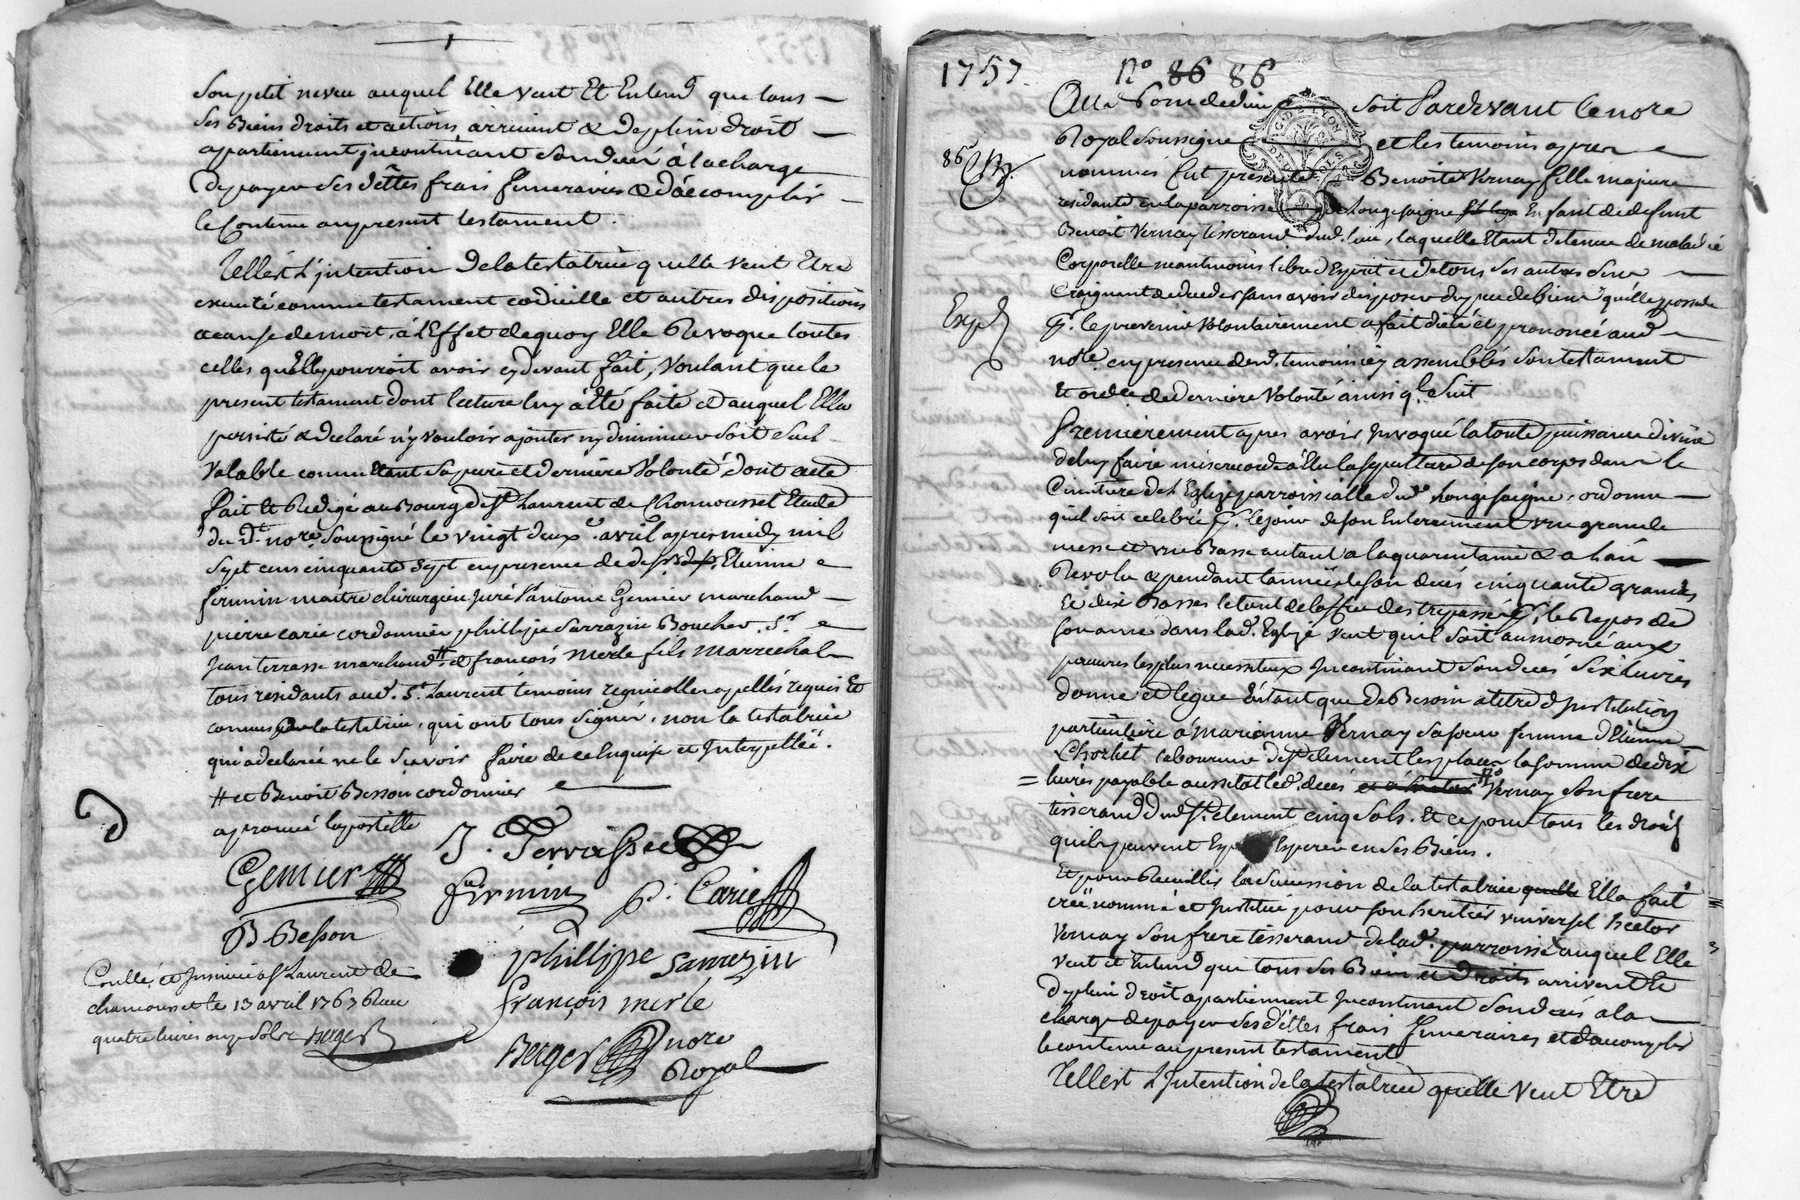 son petit neveu auquel Elle veut Et Entend que tous
ses Biens droits et actions arrivent & de plein droit
apartiennent incontinant son decés à la charge
de payer ses dettes frais funeraires & d'accomplir
le Contenu au present testament.
Telle est L'intention de la testatrice qu'elle veut Etre
executé comme testament codicille et autres dispositions
a cause de mort, à L'Effet de quoy Elle Revoque toutes
celles qu'elle pourroit avoir cy devant fait, Voulant que le
present testament dont lecture luy à été faite et auquel Elle
persisté & declaré n'y vouloir ajouter ny diminuer soit seul
Valable comme Etant sa pure et derniere Volonté dont acte
fait Et Redigé au Bourg de St Laurent de Chamousset Etude
du dt. nore. soussigné le vingt deux avril apres midy mil
sept cens cinquante sept en presence de Etienne
firmin maitre chirurgien juré antoine Gemier marchand
pierre carie cordonnier phillipe sarrazin Boucher Sr.
jean terrasse marchand # et françois merle fils marrechal
tous residants aud. St. Laurent temoins regnicolles apellés requis Et
connus de la testatrice, qui ont tous signés, non la testatrice
qui a declarée ne le sçavoir faire de ce Enquise et Interpellée.
# et Benoit Besson cordonnier
aprouvé l'apostille
J. Terrasse
Gemier
firmin
P. Carie
B Besson
phillippe sarrazin
Conllé et Insinué a St Laurent de
chamousset le 13 avril 1767 Reçu
quatre livres onze sols Berger
françois merle
Berger nore
Royal
1757. No 86 86
soit Pardevant Le nore
Royal soussigné et les temoins apres
86
nommés fut presente Benoite Vernay fille majeure
residante en la parroisse de Longesaigne Enfant de defunt
Benoit Vernay tisserand dud. lieu, laquelle Etant detenue de maladie
Corporelle neantmoins libre d'Esprit et de tous ses autres sens
Craignant de deceder sans avoir disposer du peu de bien qu'elle possede
Expd
pr. le prevenir Volontairement a fait dicté et prononcé aud.
nore. en presence desd. temoins icy assemblés son testament
Et ordce de derniere Volonté ainsi q. suit
Premierement apres avoir Invoqué la toute puissance divine
de luy faire misericorde à Elu la sepulture de son corps dans le
Cimetiere de L'Eglize parroissialle dud. Longesaigne, ordonne
quil soit celebré pr. le jour de son Enterrement une grande
messe et une Basse autant a la quarantaine & a l'an
Revolu & pendant l'année de son decés cinquante grandes
Et dix Basses le tout de l'office des trepassés pr. le Repos de
son ame dans lad. Eglize veut qu'il soit aumosné aux
pauvres les plus necessiteux Incontinant son deces six livres
donne et legue Entant que de Besoin a titre d'Institution
particuliere à marianne Vernay sa soeur femme d'Etienne
Chorket laboureur de St Clement les places la somme de dix
= livres payable aussitot led. decés Vernay son frere
tisserand dud. St. Clement cinq sols. Et ce pour tous les droits
qu'ils peuvent Esperer en ses Biens.
Et pour Recueillir la succession de la testatrice quelle Ella fait
crée nommé et Institué pour son heritier universel hector
Vernay son frere tisserand de lad. parroisse auquel Elle
veut et Entend que tous ses Biens et Droits arrivent Et
de plein droit apartiennent Incontinent son decés a la
charge de payer ses dettes frais funeraires et d'accomplir
le contenu au present testament
Telle est L'Intention de la testatrice quelle veut Etre